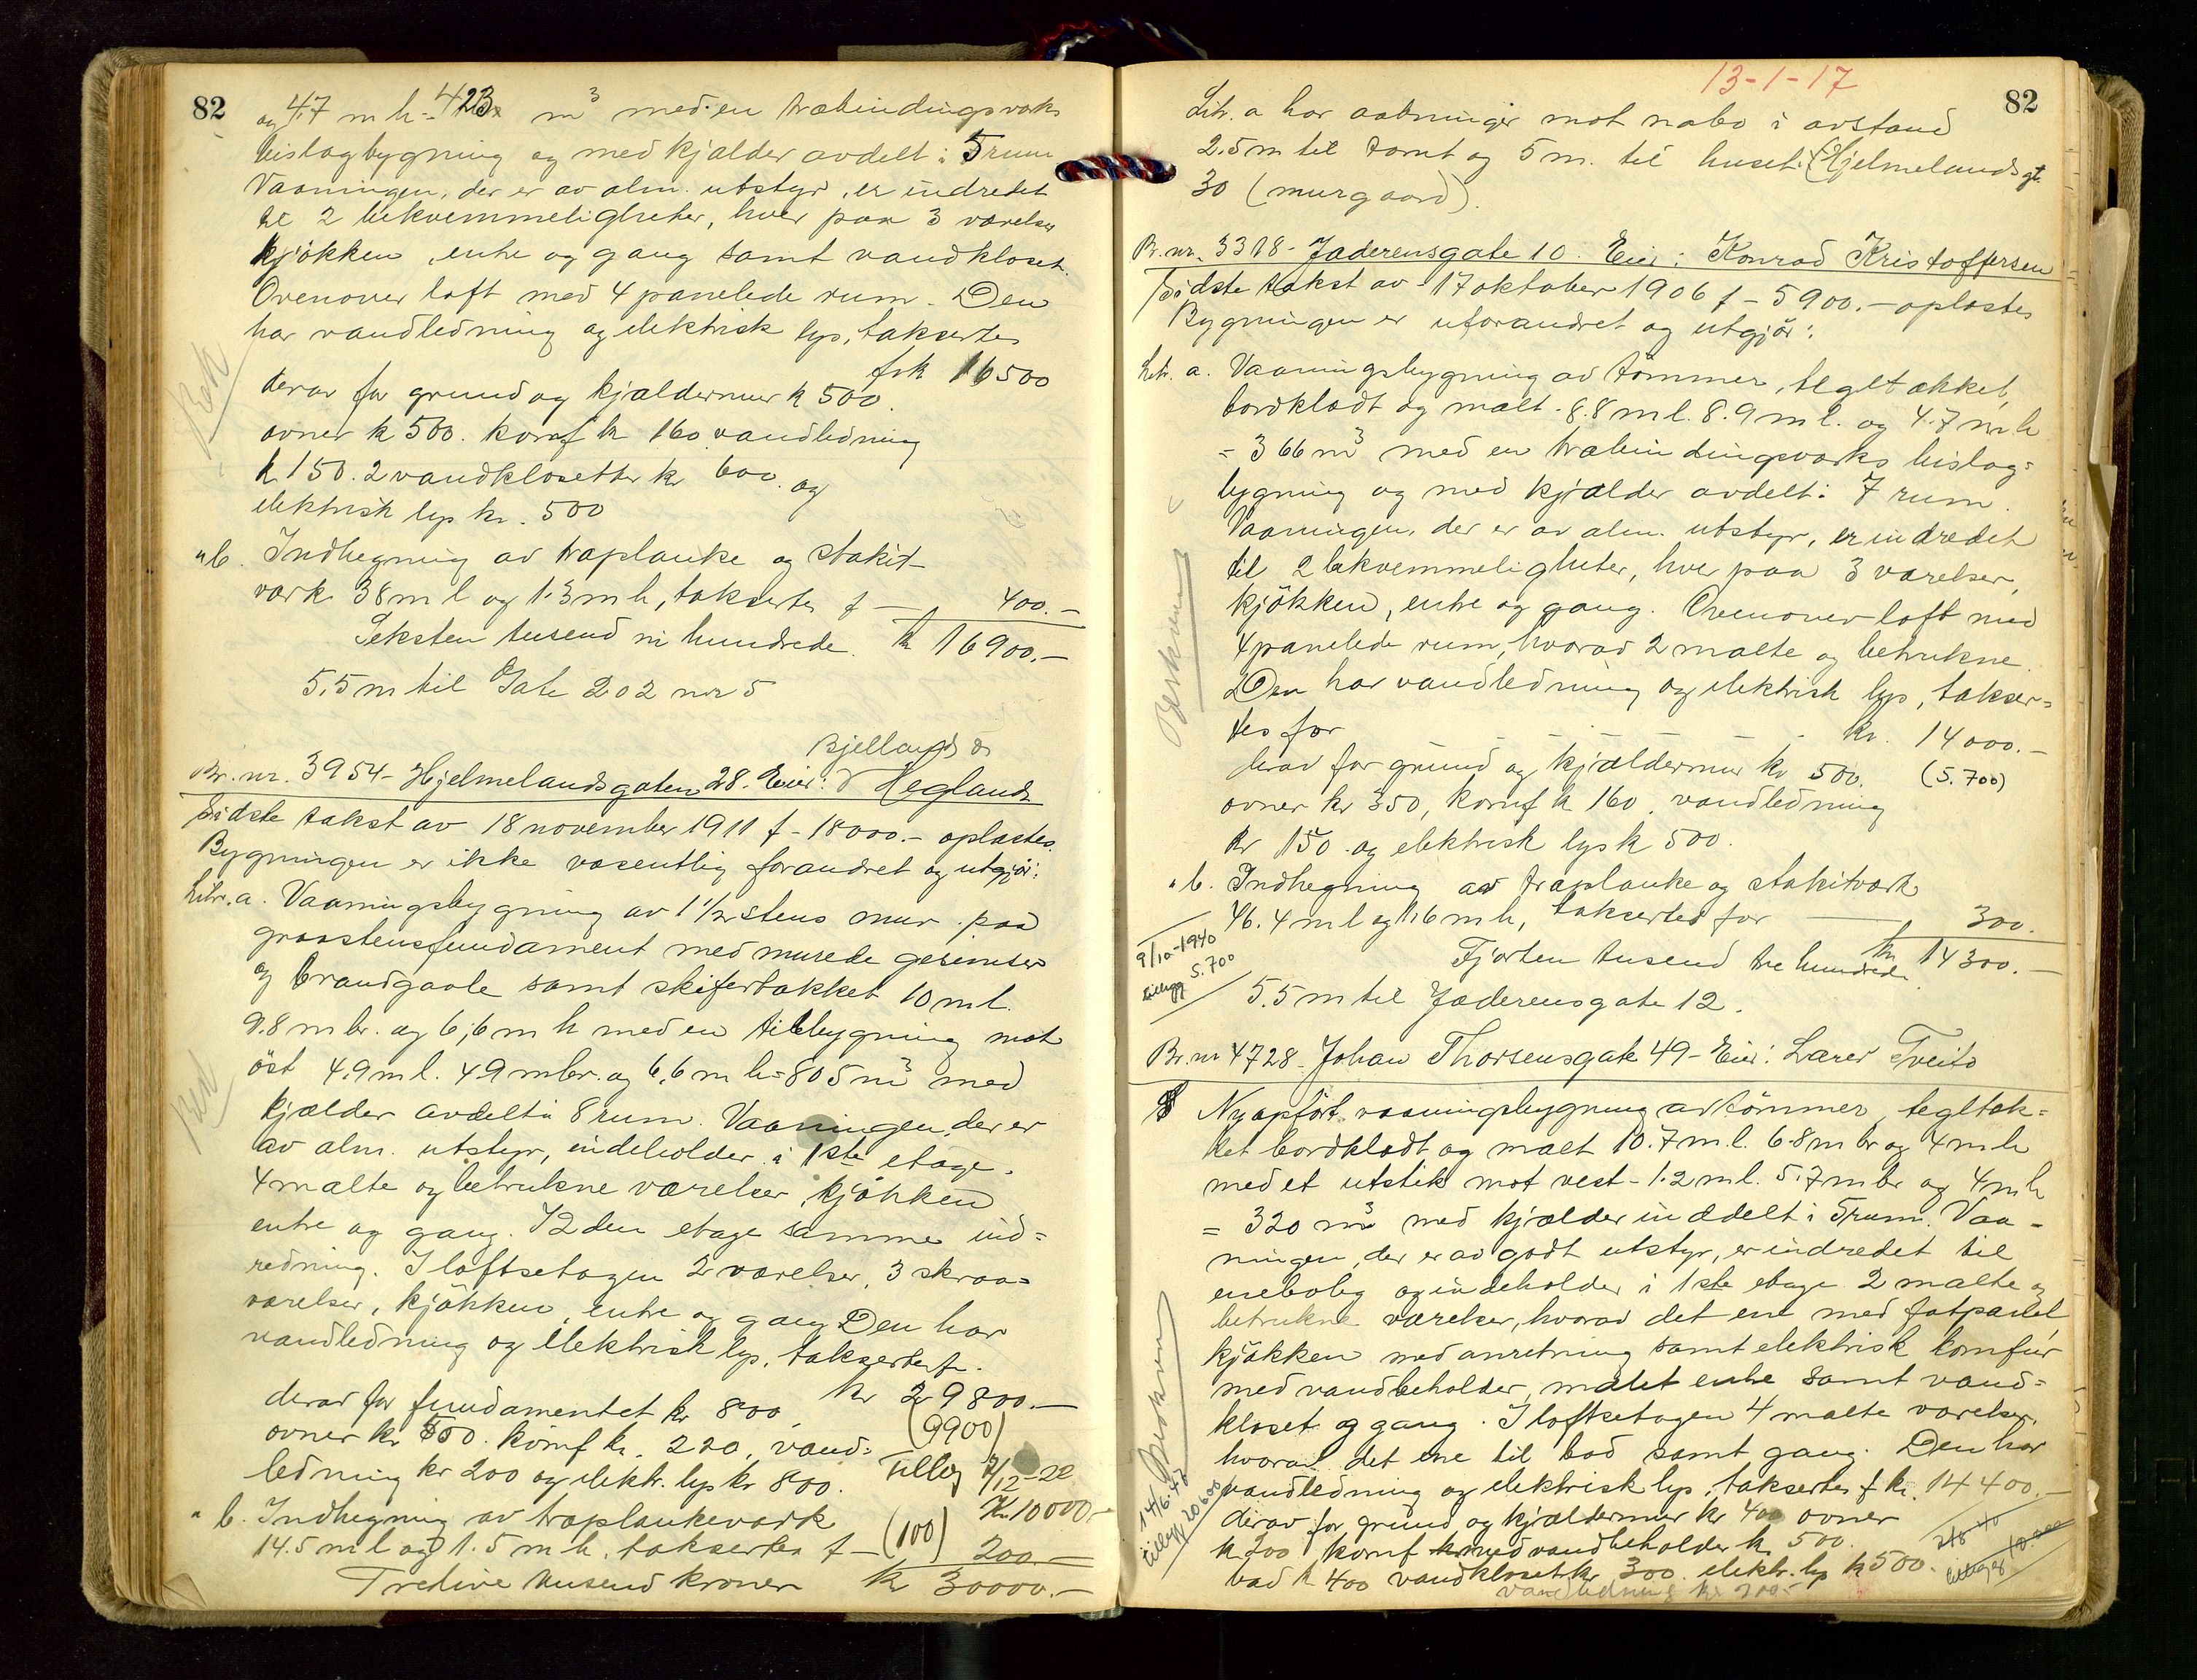 82
og 4.7 m h = 423 m³ med en træbindingsværks
bislagbygning og med kjælder avdelt i 5 rum
Vaaningen, der er av alm. utstyr, er indredet
til 2 bekvemmeligheter, hver paa 3 værelser
kjökken, entre og gang samt vandkloset.
Ovenover loft med 4 panelede rum. Den
har vandledning og elektrisk lys, takseres
f kr 16500
derav for grund og kjældermur k 500.
ovner k 500. komf k 160 vandledning
k 150. 2 vandklosetter kr 600. og
elektrisk lys kr. 500
Bek
" b. Indhegning av træplanke og stakit-
værk 38 m l og 1.3 m h, takseres f — 400.-
Seksten tusend ni hundrede. kr 16900.-
5.5 m til Gate 202 nr 5
Bjelland &
Br. nr. 3954 - Hjelmelandsgaten 28. Eier: Hegland
Sidste takst av 18 november 1911 f - 18000.- oplæstes.
Bygningen er ikke væsentlig forandret og utgjör:
Litr. a. Vaaningsbygning av 1½ stens mur paa
graastensfundament med murede gesimser
og brandgavle samt skifertækket 10 m l.
9.8 m br. og 6,6 m h med en tilbygning mot
öst 4.9 m l. 4.9 m br. og 6.6 m h = 805 m³ med
kjælder avdelt i 8 rum. Vaaningen, der er
av alm. utstyr, indeholder i 1ste etage.
4 malte og betrukne værelser kjökken
entre og gang. I 2den etage samme ind=
redning. I loftsetagen 2 værelser, 3 skraa=
værelser, kjökken, entre og gang Den har
vandledning og elektrisk lys, takseres f.
kr 29800.-
derav for fundamentet kr 800,
(9900)
ovner kr 500. komf kr. 220, vand=
ledning kr 200 og elektr. lys kr 800.
Tillæg /12-22
Kr 10000.-
" b. Indhegning av træplankeværk
14.5 m l og 1.5 m h, takseres f — (100) 200.-
Tredive tusend kroner kr 30000.-
13-1-17
82
Litr. a har aabninger mot nabo i avstand
2.5 m til tomt og 5 m. til huset (Hjelmelandsgt.
30 (murgaard).
Br. nr. 3318 - Jæderensgate 10. Eier: Konrad Kristoffersen
Sidste takst av 17 oktober 1906 f - 5900.- oplæstes
Bygningen er uforandret og utgjör:
Litr. a. Vaaningsbygning av tömmer, tegltækket,
bordklædt og malt. 8.8 m l. 8.9 m l. og 4.7 m h
= 366 m³ med en træbindingsværks bislag=
bygning og med kjælder avdelt i 7 rum.
Vaaningen, der er av alm. utstyr, er indredet
til 2 bekvemmeligheter, hver paa 3 værelser,
kjökken, entre og gang. Ovenover loft med
4 panelede rum, hvorav 2 malte og betrukne.
Den har vandledning og elektrisk lys, takser=
tes for kr. 14000.-
derav for grund og kjældermur kr 500. (5.700)
ovner kr 350, komf k 160. vandledning
kr 150. og elektrisk lys k 500.
" b. Indhegning av træplanke og stakitværk
46.4 m l og 1.6 m h, takseres for 300.
9/10-1940
tillegg 5.700
Fjorten tusend tre hundrede kr 14300.-
5.5 m til Jæderensgate 12.
Br. nr 4728. Johan Thorsensgate 49 - Eier: Lærer Tveito
Nyopfört vaaningsbygning av tömmer, tegltæk=
ket bordklædt og malt 10.7 m l. 6.8 m br og 4 m h
med et utstik mot vest - 1.2 m l. 5.7 m br og 4 m h
= 320 m³ med kjælder inddelt i 5 rum. Vaa-
ningen, der er av godt utstyr, er indredet til
enebolig og indeholder i 1ste etage 2 malte og
betrukne værelser, hvorav det ene med fotpanel
kjökken med anretning samt elektrisk komfur
med vandbeholder, malet entre samt vand=
kloset og gang. I loftsetagen 4 malte værelser,
hvorav det ene til bad samt gang. Den har
vandledning og elektrisk lys, takseres f kr. 14400.-
14/6.47
tillegg 20600
derav for grund og kjældermur kr 400 ovner
k 200 komf med vandbeholder k 500.
bad k 400 vandkloset kr 300. elektr. lys k 500.
vandledning kr 200.-
tillegg 10.000